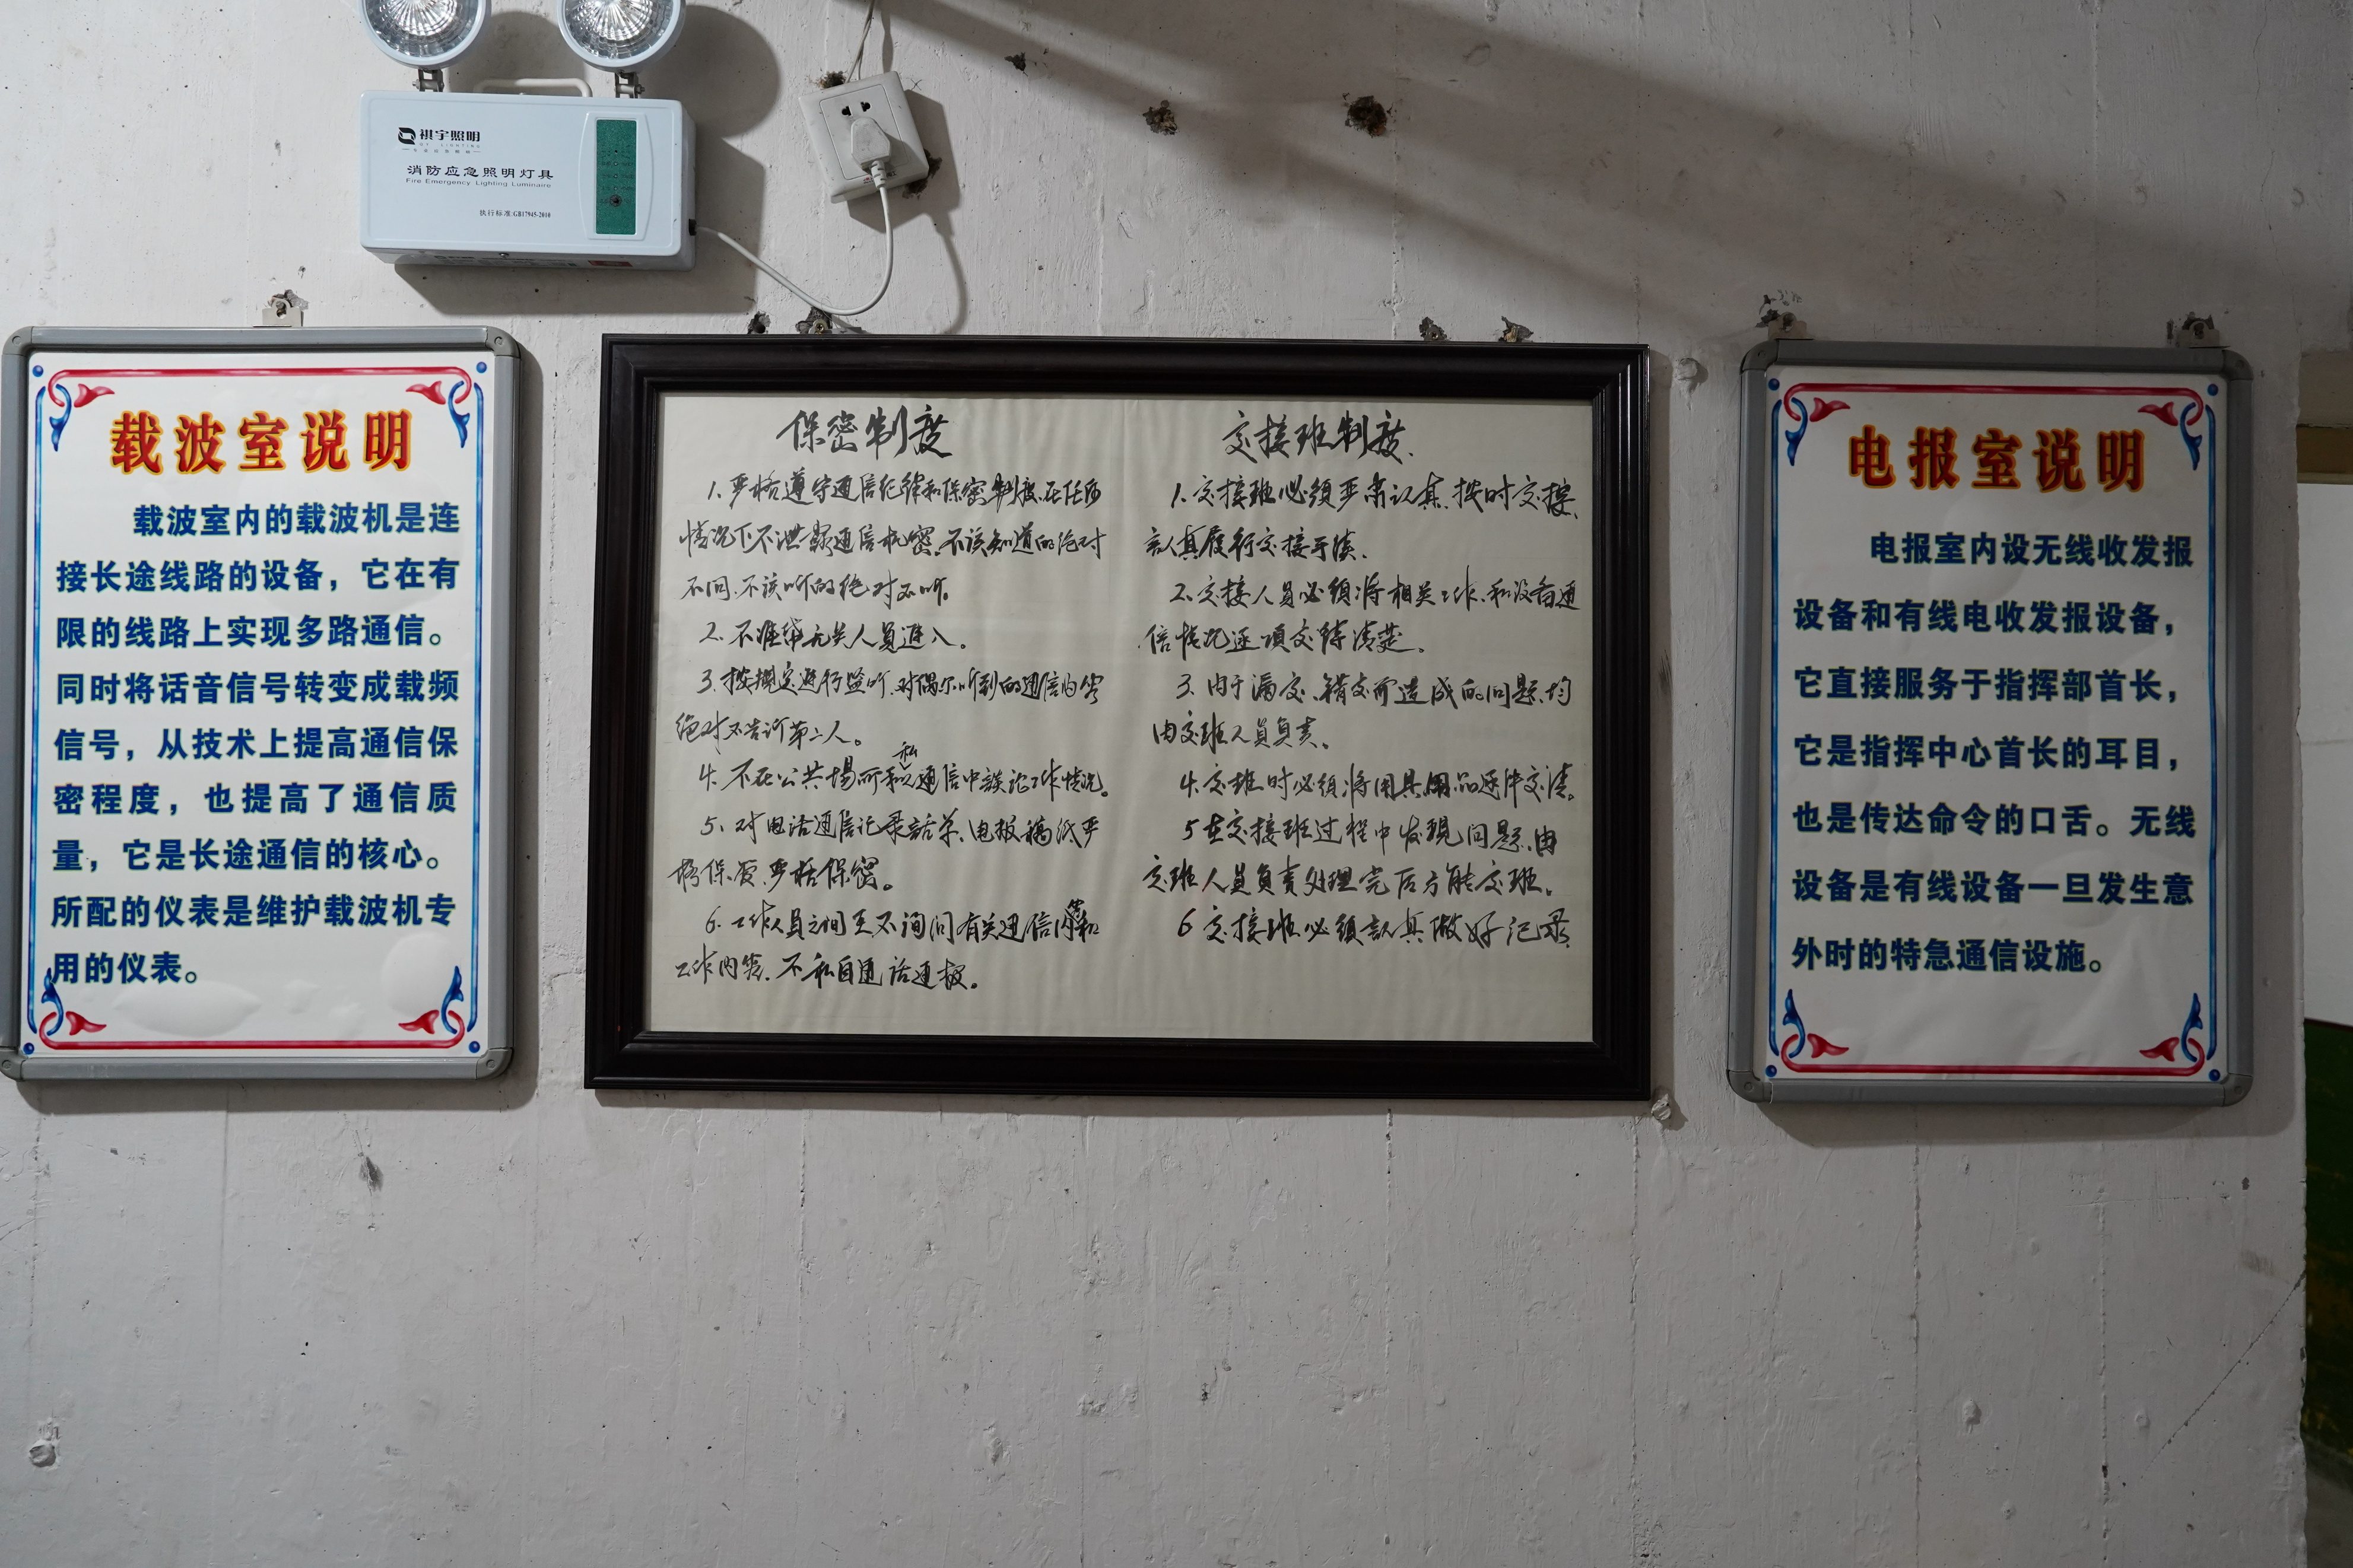 祺宇照明
QY LIGHTING
消防应急照明灯具
Fire Emergency Lighting Luminaire
执行标准:GB17945-2010
载波室说明
载波室内的载波机是连
接长途线路的设备，它在有
限的线路上实现多路通信。
同时将话音信号转变成载频
信号，从技术上提高通信保
密程度，也提高了通信质
量，它是长途通信的核心。
所配的仪表是维护载波机专
用的仪表。
保密制度
1.严格遵守通信纪律和保密制度.在任何
情况下不泄露通信机密.不该知道的绝对
不问.不该听的绝对不听。
2.不准带无关人员进入。
3.按规定进行监听.对偶尔听到的通信内容
绝对不告诉第二人。
4.不在公共场所和私人通信中谈论工作情况。
5.对电话通信记录話单、电报稿纸严
格保管.严格保密。
6.工作人员之间互不询问有关通信内容和
工作内容.不私自通话通报。
交接班制度.
1.交接班必须严肃认真.按时交接、
認真履行交接手续.
2.交接人员必须将相关工作、和设备通
信情况逐项交待清楚。
3.由于漏交、错交而造成的问题.均
由交班人员负责。
4.交班时必须将用具用品逐件交清。
5在交接班过程中发现问题.由
交班人员负责处理完后方能交班.
6交接班必须認真做好记录.
电报室说明
电报室内设无线收发报
设备和有线电收发报设备，
它直接服务于指挥部首长，
它是指挥中心首长的耳目，
也是传达命令的口舌。无线
设备是有线设备一旦发生意
外时的特急通信设施。